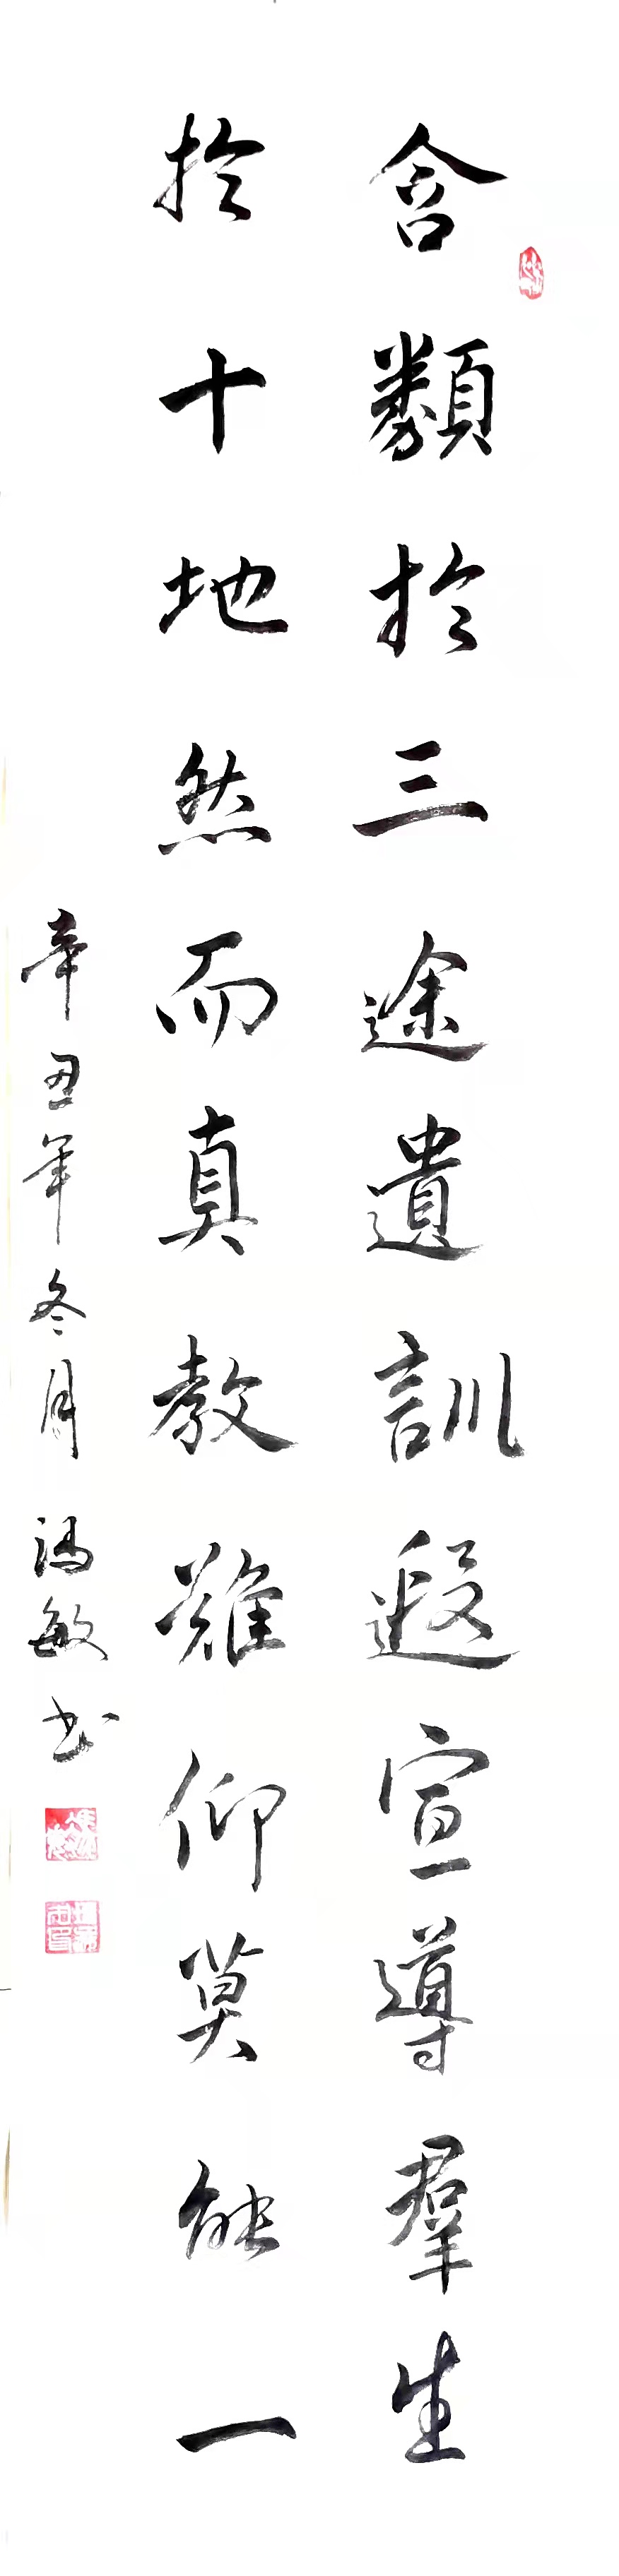 含類於三途遺訓遐宣導羣生
於十地然而真教難仰莫能一
辛丑年冬月馮敏书